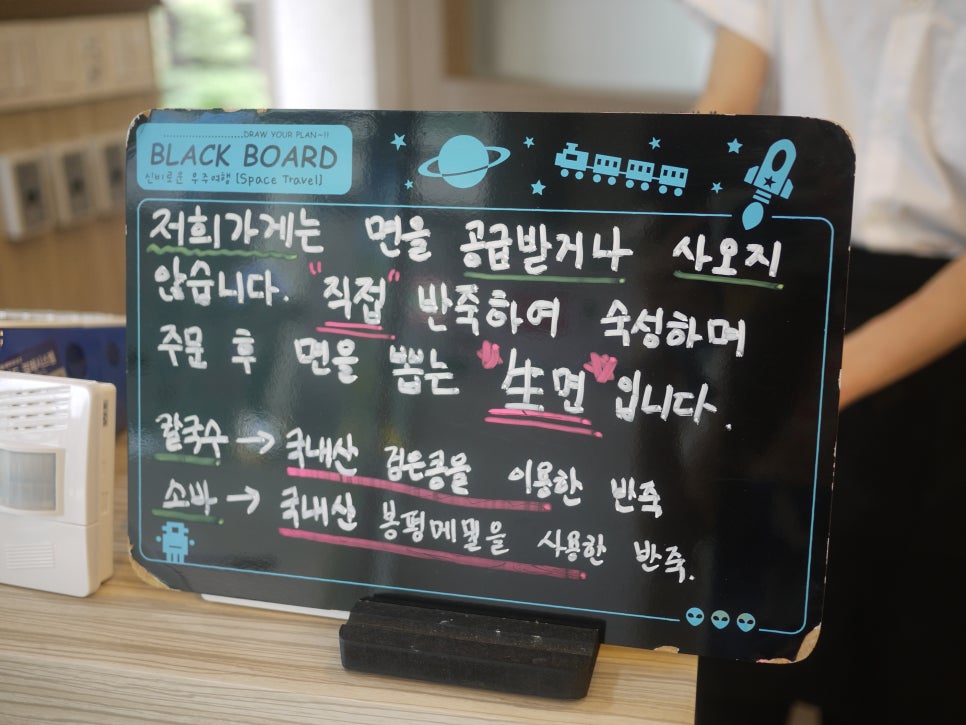 DRAW YOUR PLAN~!!
BLACK BOARD
신비로운 우주여행 [Space Travel]
저희가게는 면을 공급받거나 사오지
않습니다. "직접" 반죽하여 숙성하며
주문 후 면을 뽑는 "生면" 입니다.
칼국수 → 국내산 검은콩을 이용한 반죽
소바 → 국내산 봉평메밀을 사용한 반죽.